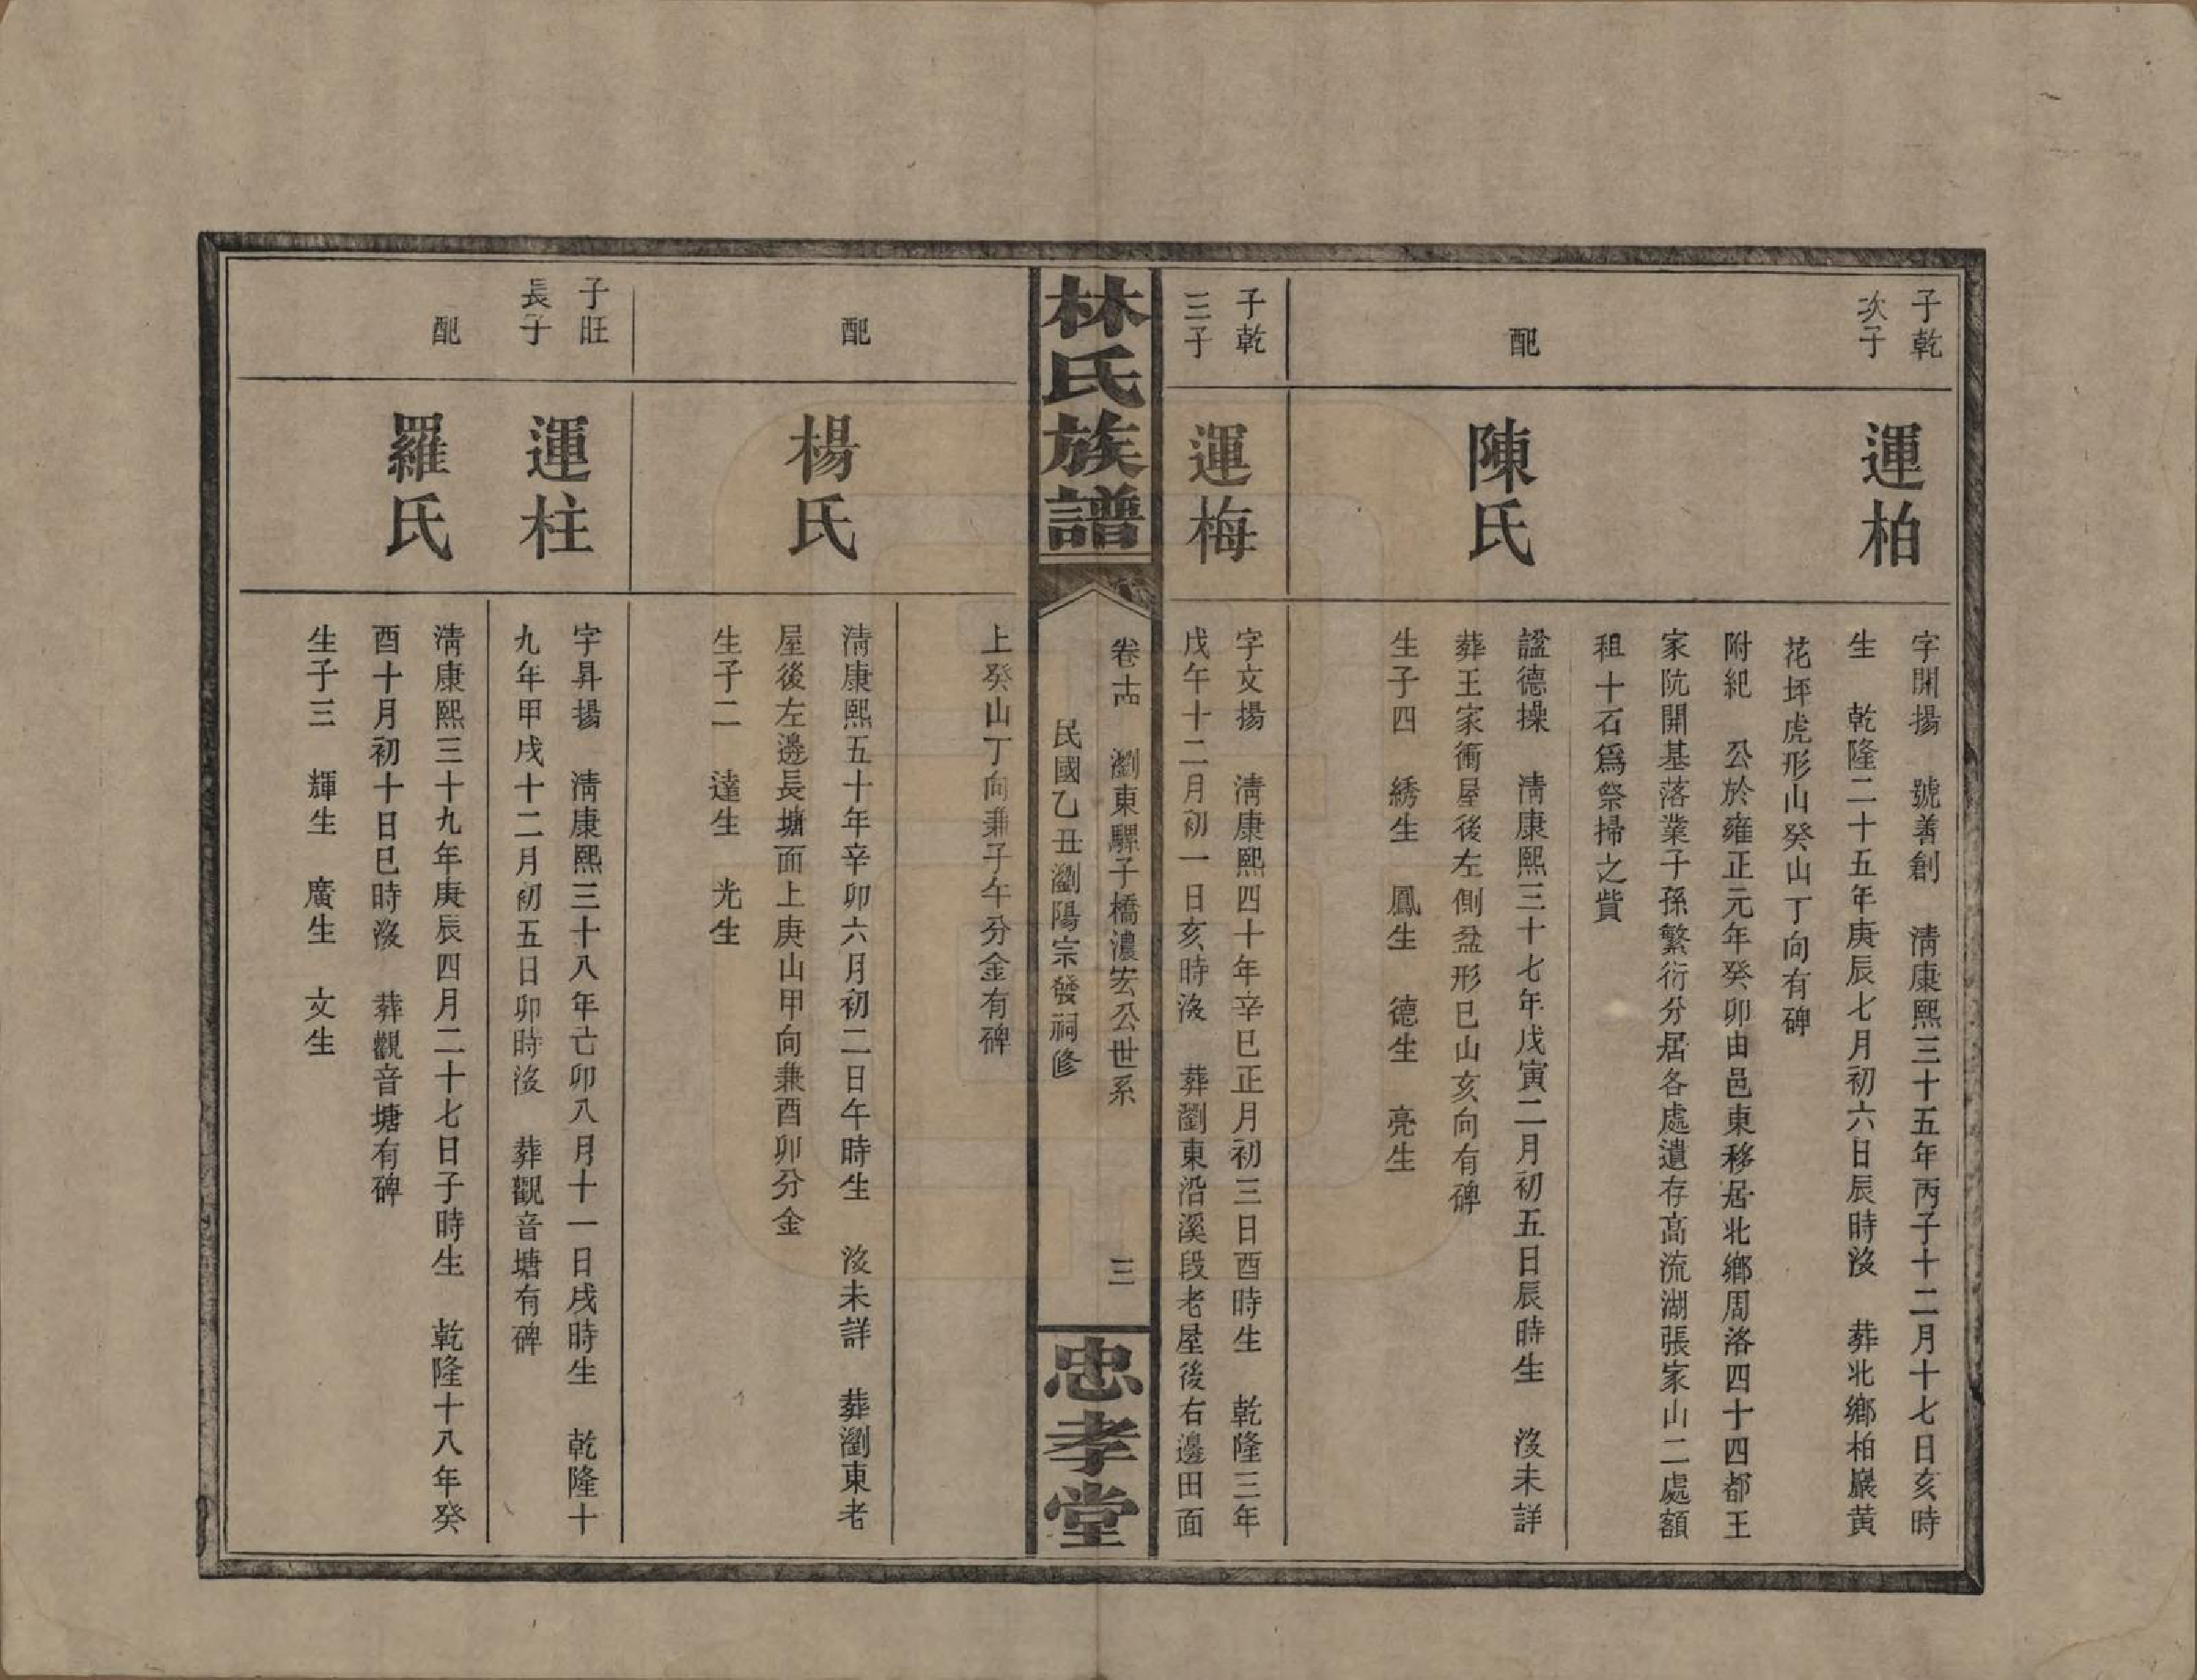 子乾
次子
運柏
字開揚　號善創　清康熙三十五年丙子十二月十七日亥時
生　乾隆二十五年庚辰七月初六日辰時歿　葬北鄉柏巖黃
花坪虎形山癸山丁向有碑
附紀　公於雍正元年癸卯由邑東移居北鄉周洛四十四都王
家阬開基落業子孫繁衍分居各處遺存高流湖張家山二處額
租十石爲祭掃之貲
配
陳氏
諡德操　清康熙三十七年戊寅二月初五日辰時生　歿未詳
葬王家衝屋後左側盆形巳山亥向有碑
生子四　綉生　鳳生　德生　亮生
子乾
三子
運梅
字文揚　清康熙四十年辛巳正月初三日酉時生　乾隆三年
戊午十二月初一日亥時歿　葬瀏東沿溪段老屋後右邊田面
林氏族譜
卷十六　瀏東騾子橋濃宏公世系　三
民國乙丑瀏陽宗發祠修
忠孝堂
上癸山丁向兼子午分金有碑
配
楊氏
清康熙五十年辛卯六月初二日午時生　歿未詳　葬瀏東老
屋後左邊長塘面上庚山甲向兼酉卯分金
生子二　達生　光生
子旺
長子
運柱
字昇揚　清康熙三十八年己卯八月十一日戌時生　乾隆十
九年甲戌十二月初五日卯時歿　葬觀音塘有碑
配
羅氏
清康熙三十九年庚辰四月二十七日子時生　乾隆十八年癸
酉十月初十日巳時歿　葬觀音塘有碑
生子三　輝生　廣生　文生